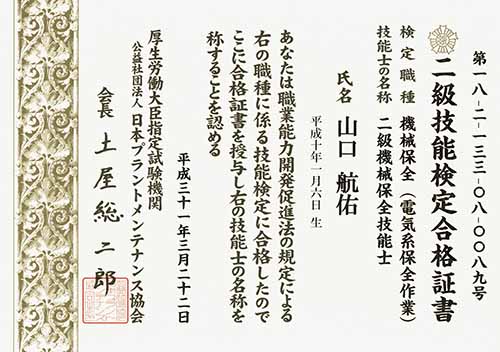 第一八-二-一三三-〇八-〇〇八九号
二級技能検定合格証書
検定職種 機械保全（電気系保全作業）
技能士の名称 二級機械保全技能士
氏名 山口 航佑
平成十年一月六日 生
あなたは職業能力開発促進法の規定による
右の職種に係る技能検定に合格したので
ここに合格証書を授与し右の技能士の名称を
称することを認める
平成三十一年三月二十二日
厚生労働大臣指定試験機関
公益社団法人 日本プラントメンテナンス協会
会長 土屋総二郎